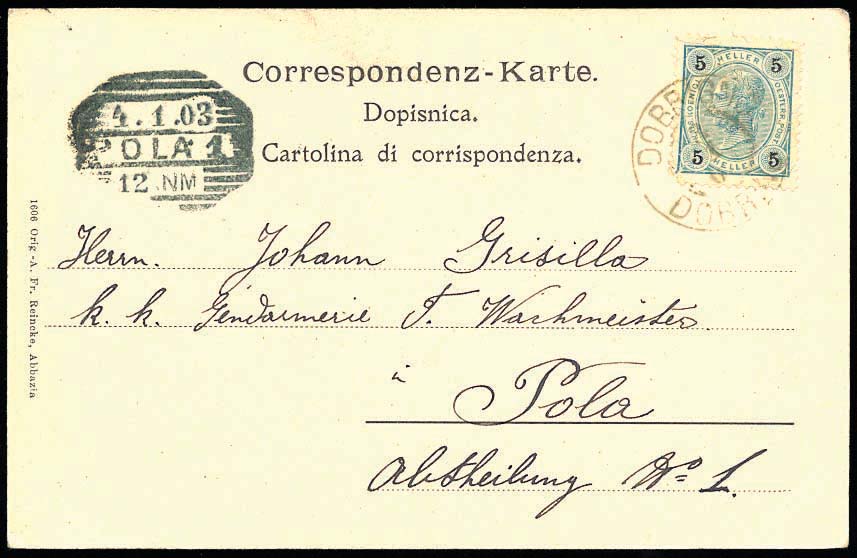 Correspondenz-Karte.
Dopisnica.
Cartolina di corrispondenza.
4.1.03
POLA 1
12.NM
5 HELLER 5
KAIS. KOENIGL. OESTERR. POST
5 HELLER 5
Herrn. Johann Grisilla
k. k. Gendarmerie T. Wachmeister
in
Pola
Abtheilung No 1.
1606 Orig.-A. Fr. Reincke, Abbazia